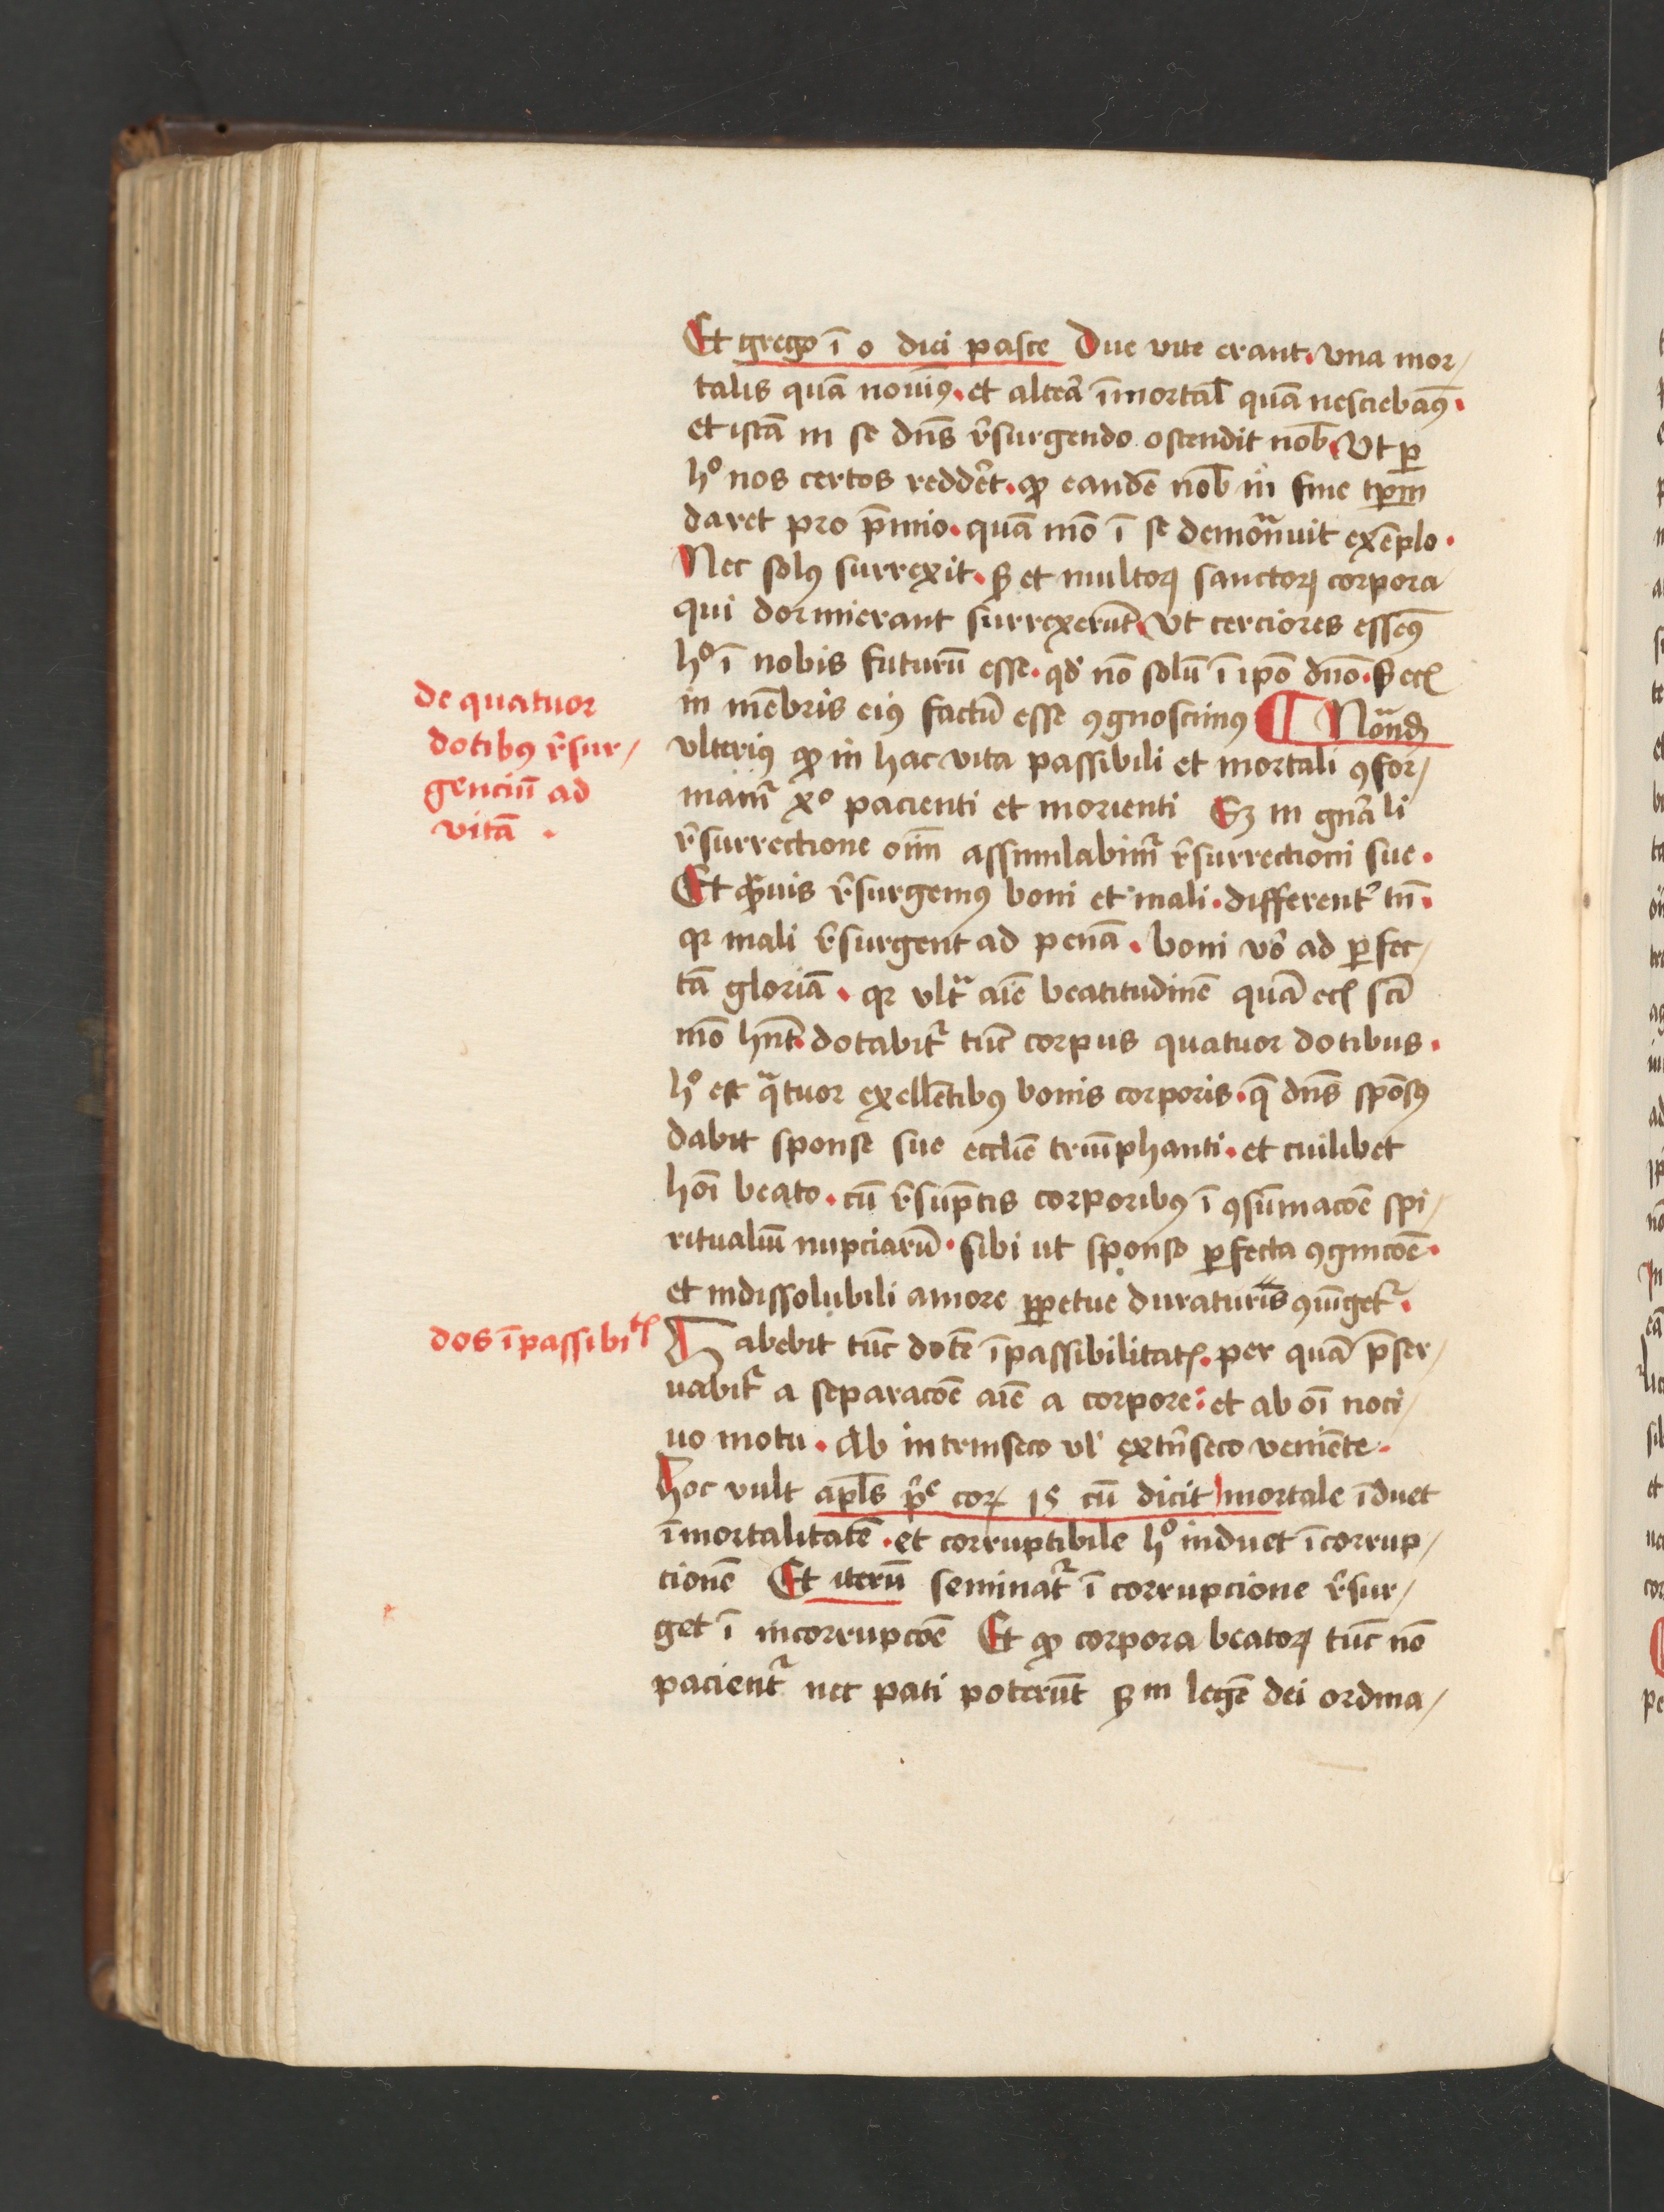 Et grego ī o dici pasce Due vite erant. vna mor/
talis quā nouīꝰ. et alterā īmortal̄ quā nesciebāꝰ.
et istā in se dn̄s r̄surgendo ostendit nob̄. Vt ꝑ
hͦ nos certos redder̄t. ꝙ eandē nob̄ in fine tꝑm
daret pro p̄mio. quā mō ī se demōᷓuit exēplo.
Nec solꝰ surrexit. sꝫ et multoꝝ sanctoꝝ corpora
qui dormierant surrexerūt. Vt cerciores essēꝰ
hͦ ī nobis futurū esse. qd̓ nō solū ī ip̄o dn̄o. sꝫ ecꝭ
de quatuor
dotibꝰ r̄sur/
genciū ad
vitā .
in mēbris eiꝰ factū esse ꝯgnoscimꝰ ¶ Nōᷓndꝫ
vlteriꝰ ꝙ in hac vita passibili et mortali ꝯfor/
mamr̄ xͦ pacienti et morienti Sꝫ in gn̄ali
r̄surrectione oīm assimilabimr̄ r̄surrectioni sue.
Et ꝙ̄uis r̄surgemꝰ boni et mali. differentr̄ tn̄.
qꝛ mali r̄surgent ad penā. boni vō ad ꝑfec/
tā gloriā. qꝛ vltᷓ aīe beatitudinē quā ecꝭ sc̄i
mō hn̄t. dotabitr̄ tūc corpus quatuor dotibus.
hͦ est qᷓtuor exellētibꝰ bonis corporis. q̄ dn̄s spōsꝰ
dabit sponse sue eccl̄ie triūphanti. et cuilibet
hōi beato. cū r̄sūptis corporibꝰ ī ꝯsūmacōe spi/
ritualiū nupciarū. sibi ut sponso ꝑfecta ꝯgnicōe.
et indissolubili amore ꝑpetue duraturis ꝯiūgetr̄.
dos īpassibitꝭ
Habebit tūc dotē īpassibilitatꝭ. per quā p̄ser/
uabitr̄ a separacōe aīe a corpore: et ab oī noci/
uo motu. Ab intrinseco vl̓ extn̄seco veniēte.
Hoc vult apl̄s p̄ᵉ coꝝ 15 cū dicit mortale īduet
īmortalitatē. et corruptibile hͦ induet īcorrup/
cionē Et iterū seminatr̄ ī corrupcione r̄sur/
get ī incorrupcōe Et ꝙ corpora beatoꝝ tūc nō
pacientr̄ nec pati poterūt ẜm legē dei ordina/